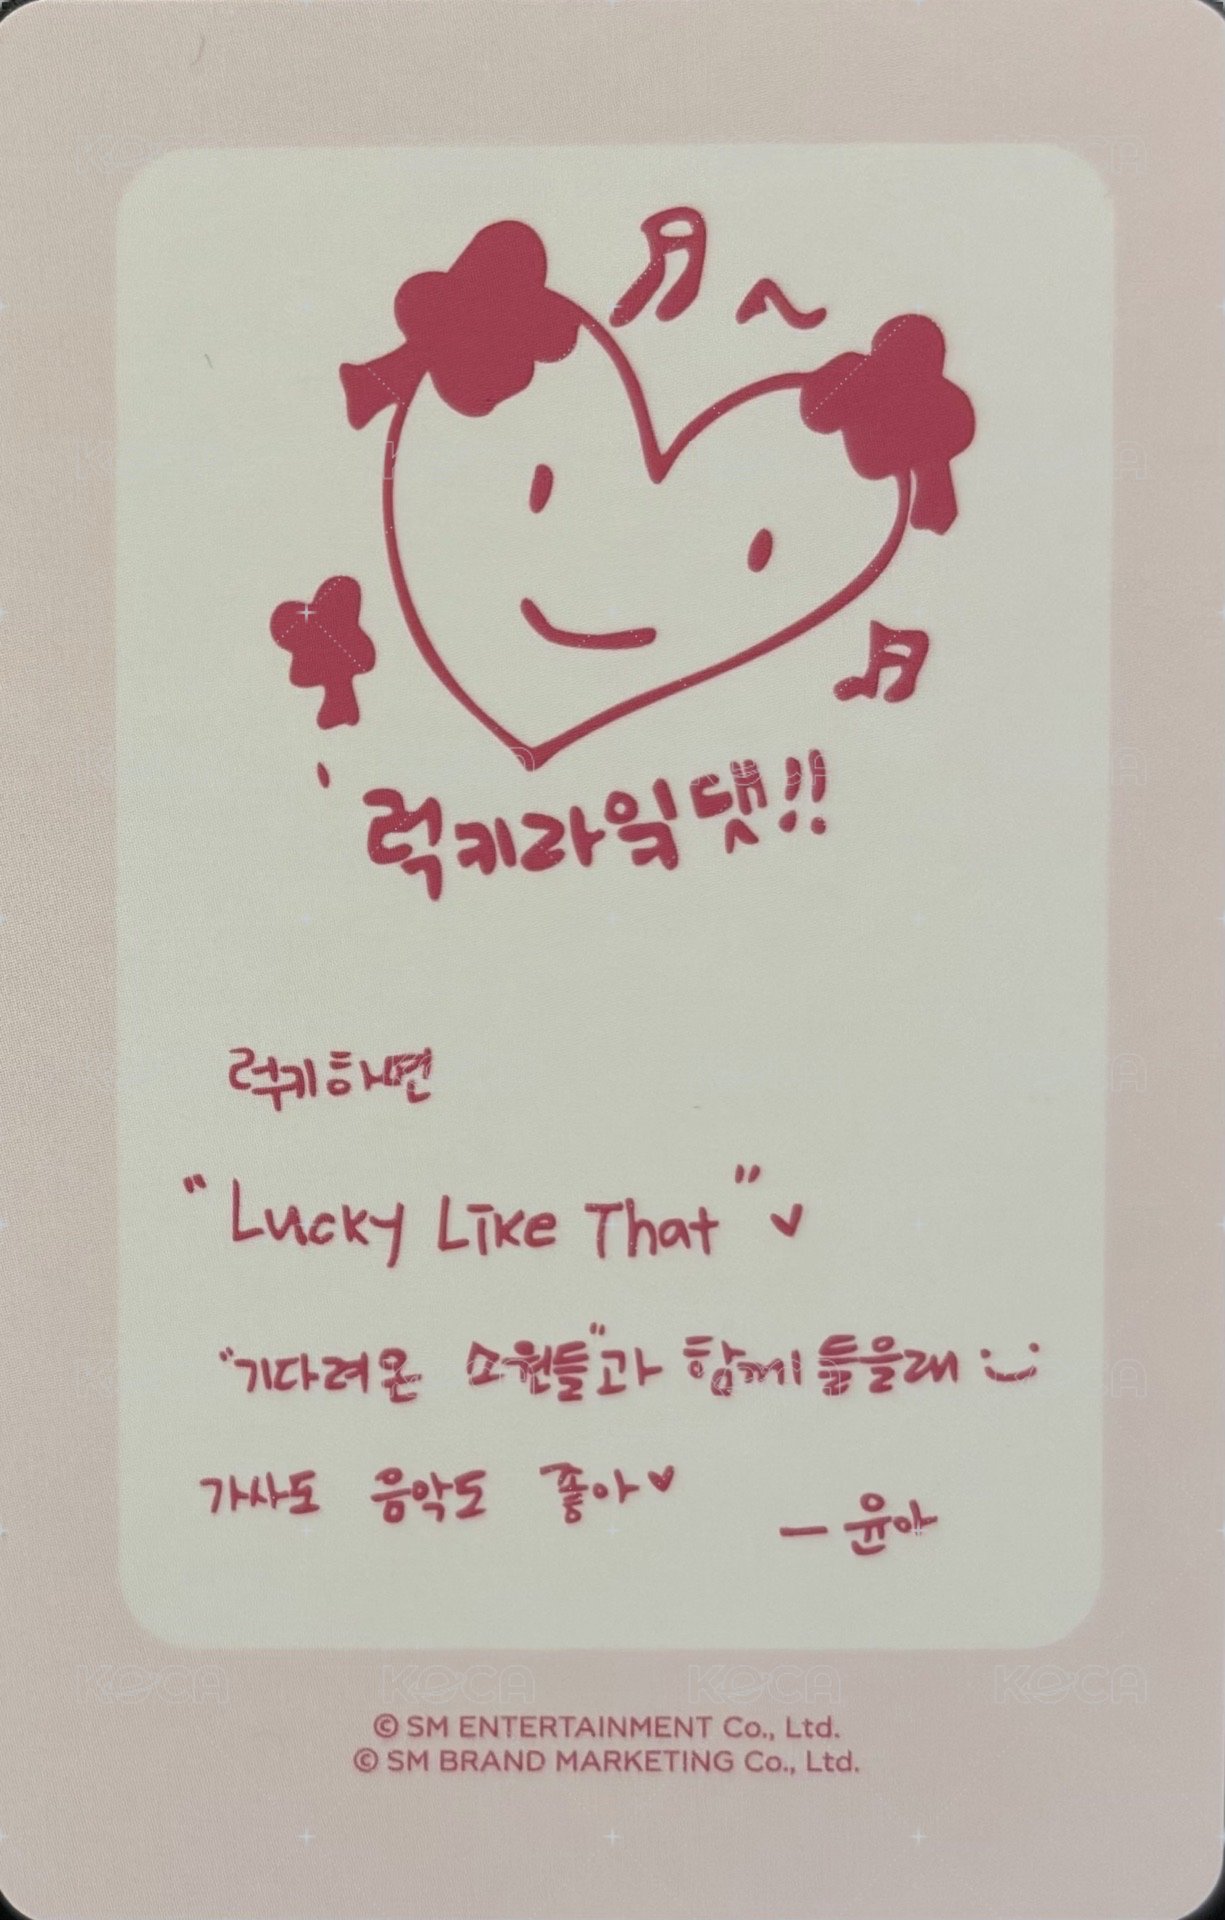 럭키라읶댓!!
럭키하면
"Lucky Like That"
"기다려온 소원들"과 함께 들을래
가사도 음악도 좋아
— 윤아
KOCA KOCA KOCA KOCA
© SM ENTERTAINMENT Co., Ltd.
© SM BRAND MARKETING Co., Ltd.